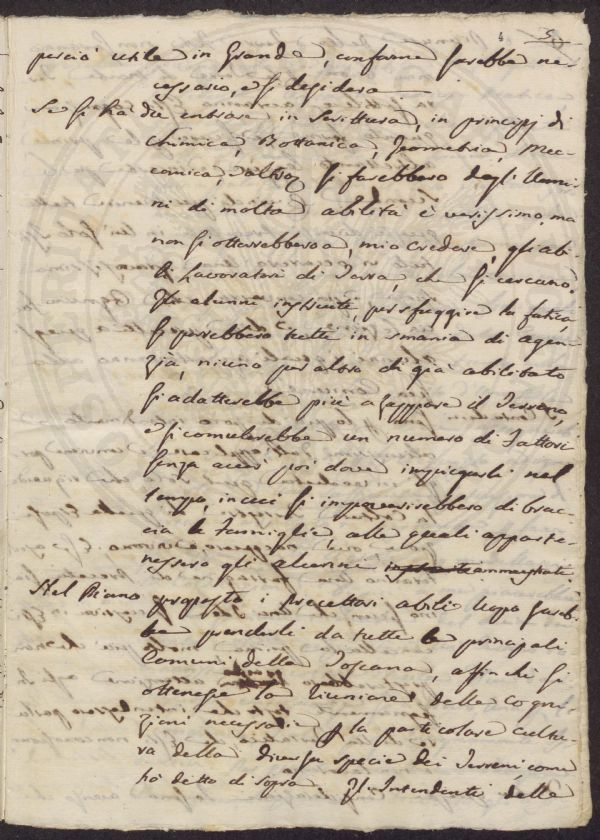 5
perciò utile in Grande, conforme sarebbe ne-
cessario, e si desidera
Se si ha da entrare in Scrittura, in principj di
Chimica, Bottanica, Geometria, Mec-
canica, ed altro si farebbero degli Uomi-
ni di molta abilità è verissimo, ma
non si otterrebbero a, mio credere, gli abi-
li Lavoratori di Terra, che si cercano.
Gli alunni instruiti, per sfuggire la fatica,
si porebbero tutti in smania di agen-
zia, niuno per altro di già abilitato
si adatterebbe più a zappare il Terreno,
e si comulerebbe un numero di Fattori
senza aver poi dove impiegarli nel
tempo, in cui si impoverirebbero di brac-
cia le Famiglie, alle quali apparte-
nessero gli alunni
Nel Piano proposto i Precettori abili uopo sareb-
be prenderli da tutte le principali
Comuni della Toscana, affinchè si
ottenesse la riunione delle cogni-
zioni necessarie la particolare cultu-
ra della diversa specie dei Terreni, come
ho detto di sopra. Gl'Intendenti delle